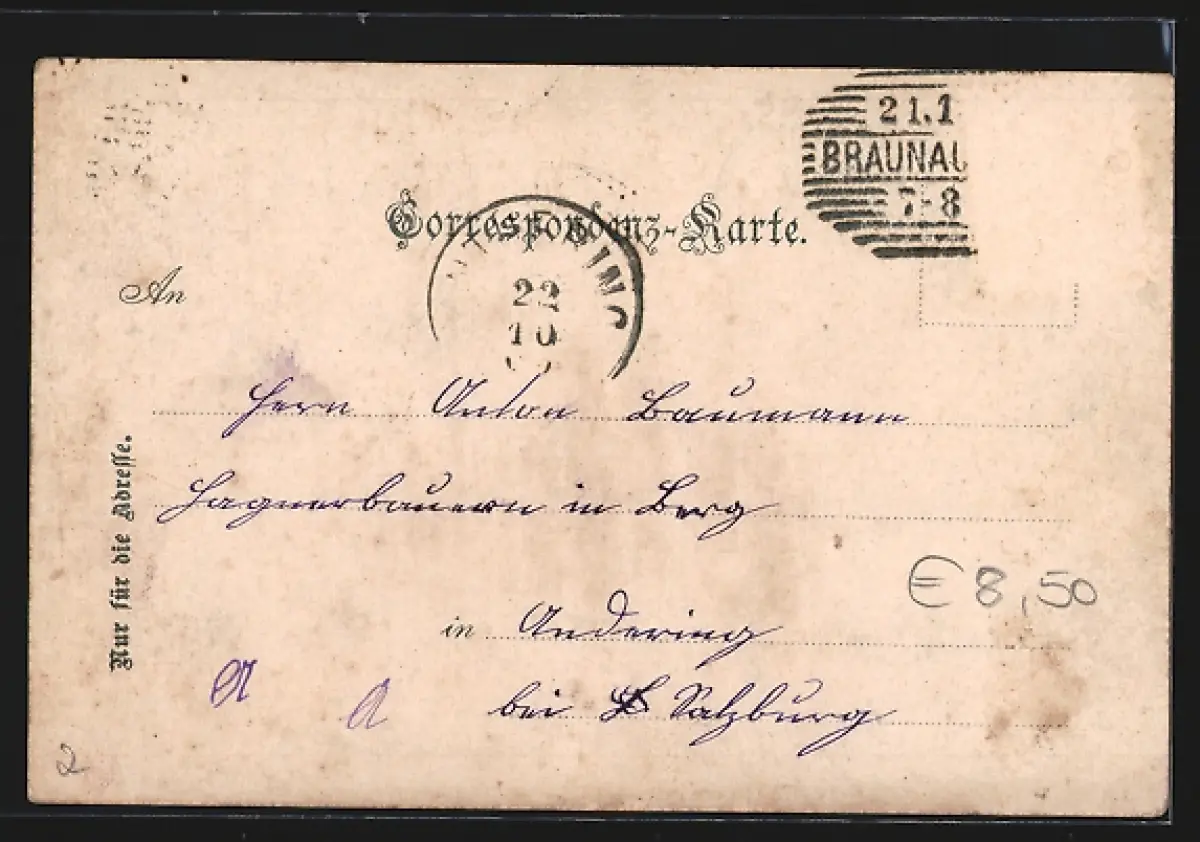 21.1
BRAUNAU
7-8
Correspondenz-Karte.
22
10
An
Herrn Anton Baumann
Hagnerbauern in Berg
in Andering
bei Salzburg
Nur für die Adresse.
€ 8,50
2